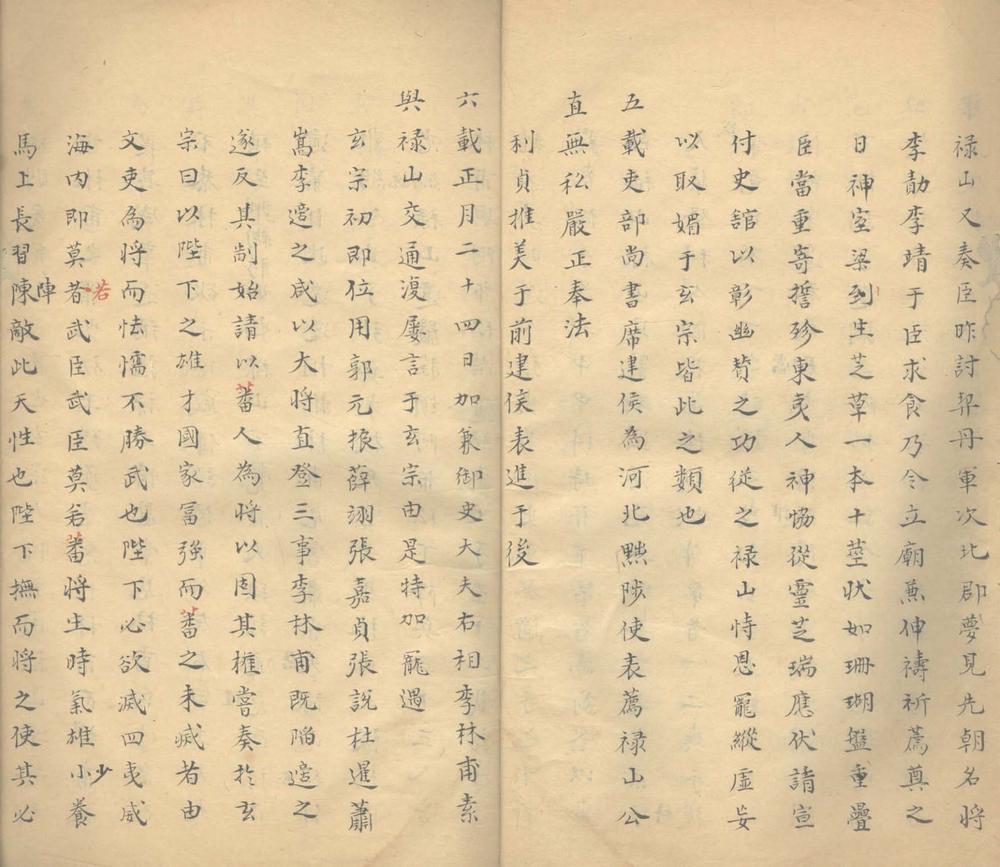 禄山又奏臣昨討契丹軍次北郡夢見先朝名將
李勣李靖于臣求食乃令立廟兼伸禱祈薦奠之
日神室梁到生芝草一本十莖狀如珊瑚盤重疊
臣當重寄誓殄東夷人神恊從靈芝瑞應伏請宣
付史舘以彰幽贊之功從之禄山恃恩寵縱虛妄
以取媚于玄宗皆此之類也
五載吏部尚書席建侯為河北黜陟使表薦禄山公
直無私嚴正奉法
利貞推美于前建侯表進于後
六載正月二十四日加兼御史大夫右相李林甫素
與禄山交通澓屡言于玄宗由是特加寵遇
玄宗初即位用郭元振薛訥張嘉貞張說杜暹蕭
嵩李適之咸以大將直登三事李林甫既陷適之
遂反其制始請以蕃人為將以固其權嘗奏於玄
宗曰以陛下之雄才國家冨強而蕃之未滅者由
文吏為將而怯懦不勝武也陛下必欲滅四夷威
海内即莫者若武臣武臣莫若蕃將生時氣雄小少養
馬上長習陳陣敵此天性也陛下撫而將之使其必